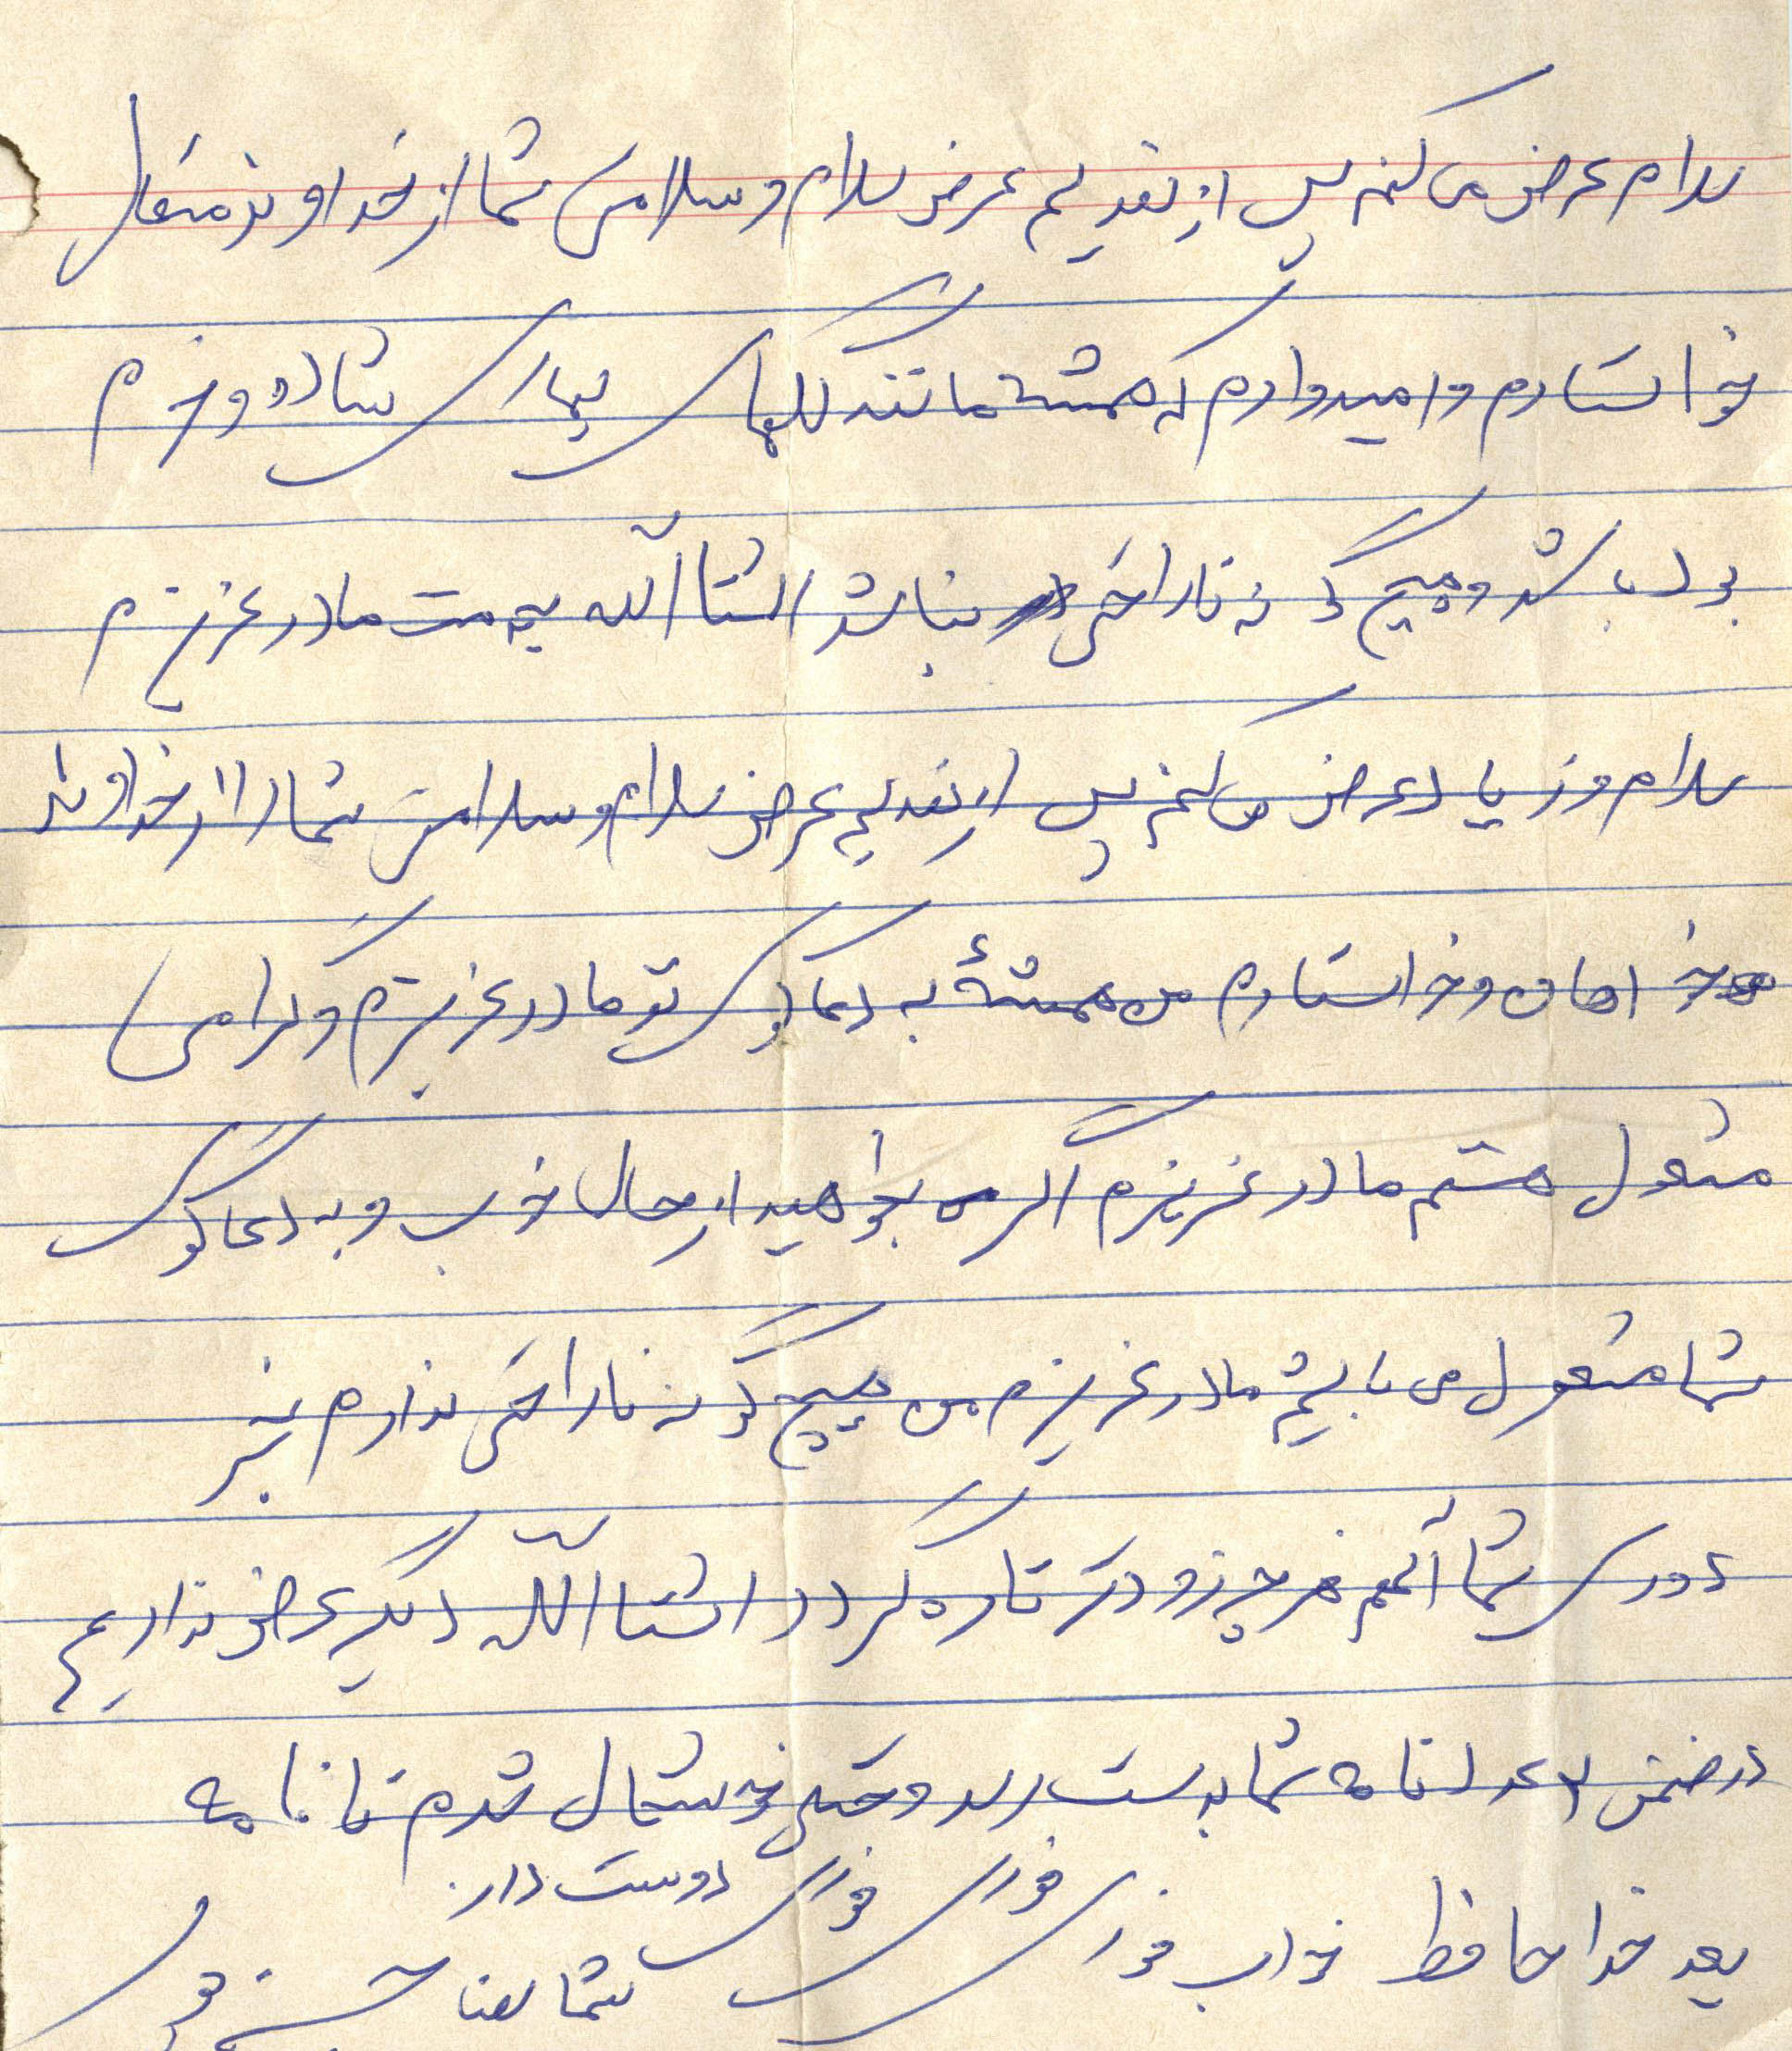 سلام عرض می کنم پس از تقدیم عرض سلام و سلامتی شما از خداوند متعال
خواستارم و امیدوارم که همیشه مانند گلهای بهاری شاد و خرم
بوده باشد و هیچ گونه ناراحتی نباشد انشاالله خدمت مادر عزیزم
سلام و زیاد عرض می کنم پس از تقدیم عرض سلام و سلامتی شما را از خداوند
خواهان و خواستارم من همیشۀ به دعا گوی تو مادر عزیزم و گرامی
مشغول هستم مادر عزیزم اگر بخواهید از حال خوب و به دعا گوی
شما مشغول می باشم مادر عزیزم من هیچ گونه ناراحتی ندارم بجز
دوری شما آنهم هر چه زودتر تازه گردد انشاالله دیگر عرضی نداریم
در ضمن عدد نامه شما بدست رسد و خیلی خوشحال شدم تا نامه
بعد خدا حافظ جواب فوری فوری فوری دوست دار
شما